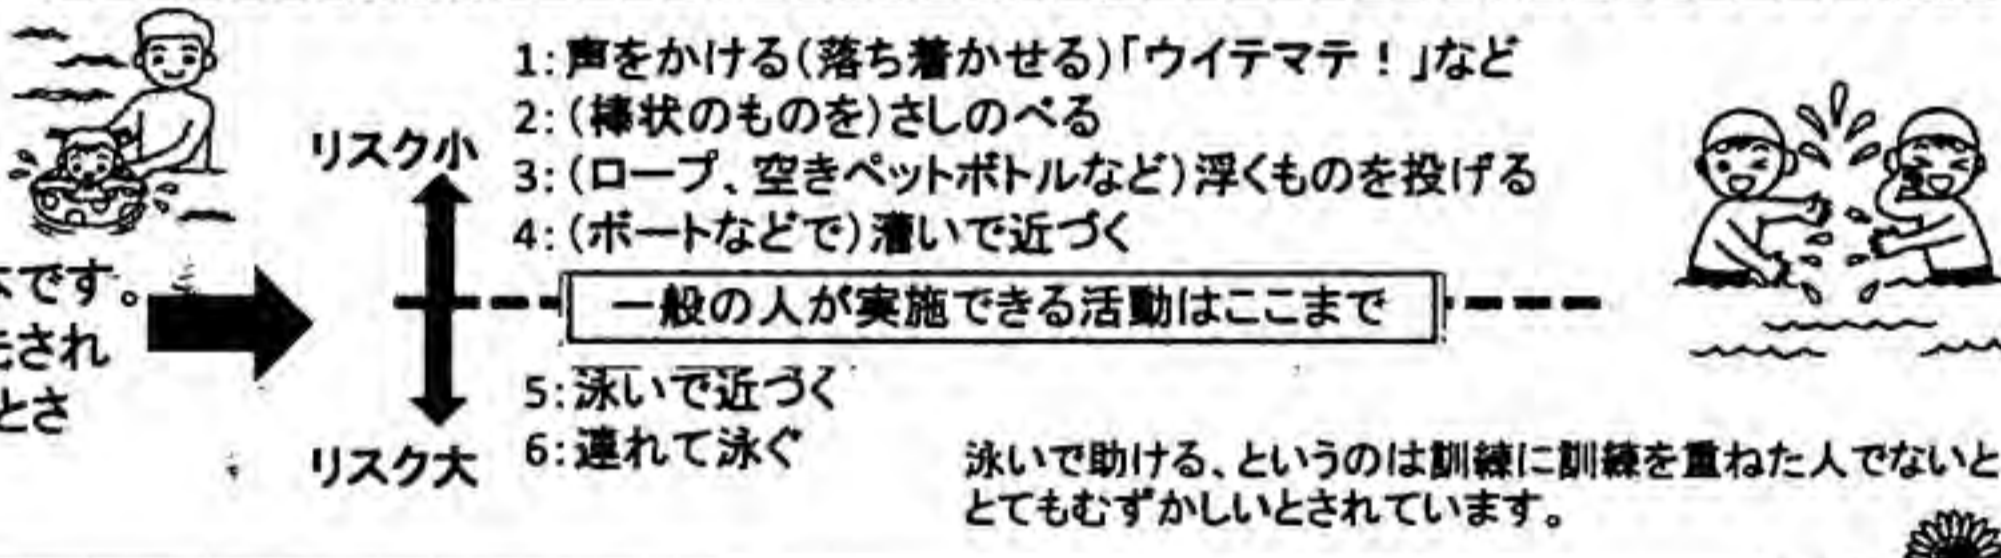 1:声をかける(落ち着かせる)「ウイテマテ!」など
2:(棒状のものを)さしのべる
リスク小
3:(ロープ、空きペットボトルなど)浮くものを投げる
4:(ボートなどで)漕いで近づく
です。
一般の人が実施できる活動はここまで
され
5:泳いで近づく
とさ
リスク大
6:連れて泳ぐ
泳いで助ける、というのは訓練に訓練を重ねた人でないと
とてもむずかしいとされています。